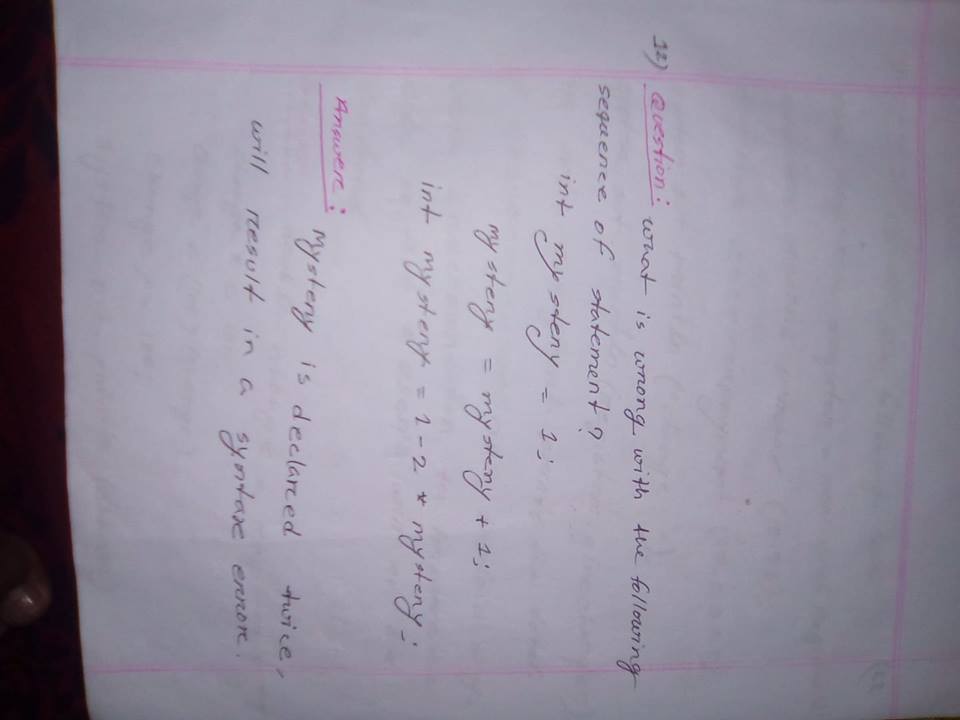 12) Question: What is wrong with the following
sequence of statement?
int mystery = 1;
mystery = mystery + 1;
int mystery = 1 - 2 * mystery;
Answer:
Mystery is declared twice,
will result in a syntax error.